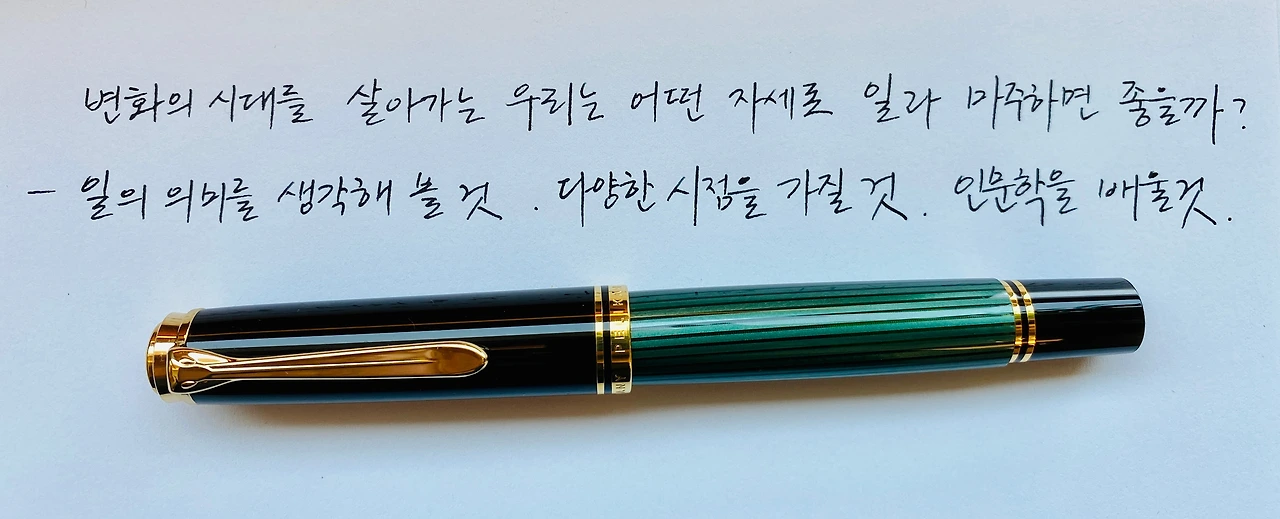 변화의 시대를 살아가는 우리는 어떤 자세로 일과 마주하면 좋을까?
- 일의 의미를 생각해 볼 것. 다양한 시점을 가질 것. 인문학을 배울것.